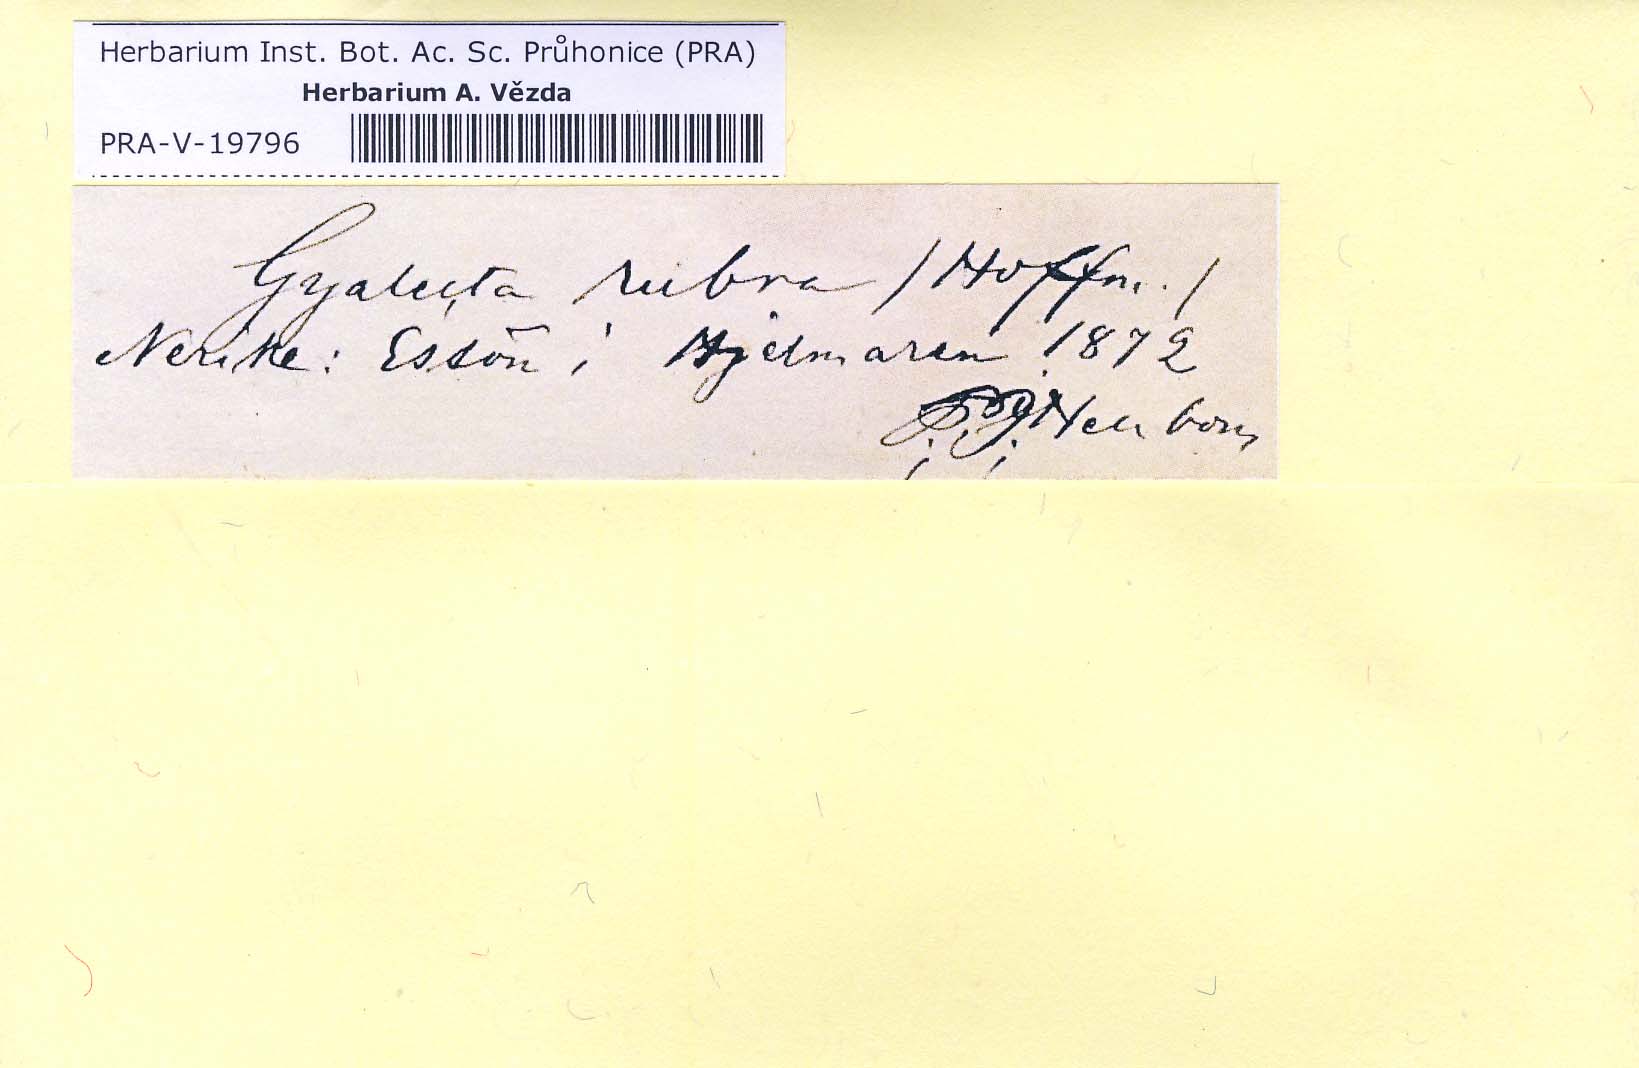 Herbarium Inst. Bot. Ac. Sc. Průhonice (PRA)
Herbarium A. Vězda
PRA-V-19796
Gyalecta rubra /Hoffm./
Nerike: Essön i Hjelmaren 1872
P. J. Hellbom